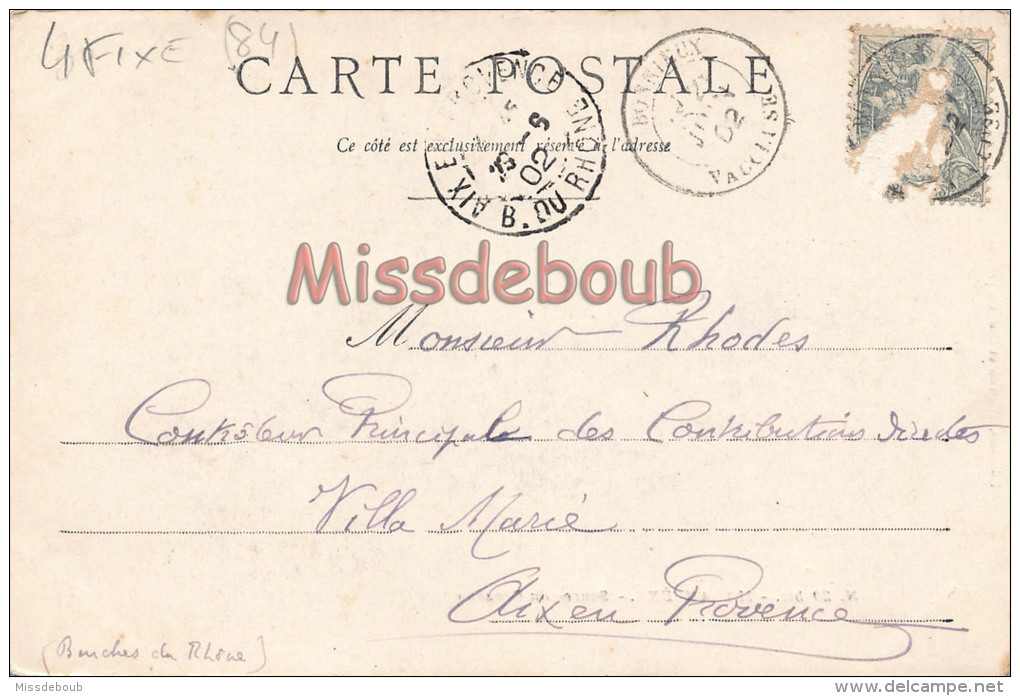 4 FIXE (84)
CARTE POSTALE
BONNIEUX
VAUCLUSE
02
AIX EN PROVENCE
02
B. DU RHONE
Ce côté est exclusivement réservé à l'adresse
Missdeboub
Monsieur Rhodes
Controleur Principale des Contributions directes
Villa Marie
Aix en Provence
(Bouches du Rhône)
Missdeboub
www.delcampe.net